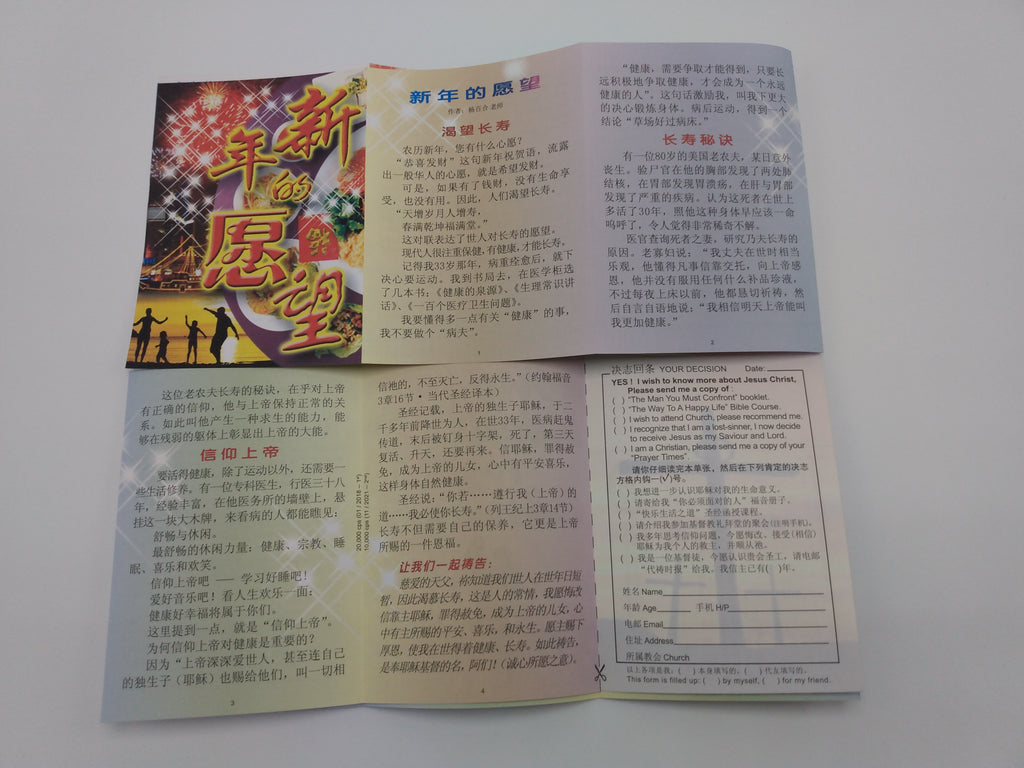 新
年
的
愿
望
新年的愿望
作者：杨百合 老师
渴望长寿
农历新年，您有什么心愿？
“恭喜发财”这句新年祝贺语，流露
出一般华人的心愿，就是希望发财。
可是，如果有了钱财，没有生命享
受，也没有用。因此，人们渴望长寿。
“天增岁月人增寿，
春满乾坤福满堂。”
这对联表达了世人对长寿的愿望。
现代人很注重保健，有健康，才能长寿。
记得我33岁那年，病重经愈后，就下
决心要运动。我到书局去，在医学柜选
了几本书：《健康的泉源》、《生理常识讲
话》、《一百个医疗卫生问题》。
我要懂得多一点有关“健康”的事，
我不要做个“病夫”。
1
“健康，需要争取才能得到，只要长
远积极地争取健康，才会成为一个永远
健康的人”。这句话激励我，叫我下更大
的决心锻炼身体。病后运动，得到一个
结论“草场好过病床。”
长寿秘诀
有一位80岁的美国老农夫，某日意外
丧生。验尸官在他的胸部发现了两处肺
结核，在胃部发现胃溃疡，在肝与胃部
发现了严重的疾病。认为这死者在世上
多活了30年，照他这种身体早应该一命
呜呼了，令人觉得非常稀奇不解。
医官查询死者之妻，研究乃夫长寿的
原因。老寡妇说：“我丈夫在世时相当
乐观，他懂得凡事信靠交托，向上帝感
恩，他并没有服用任何什么补品珍液，
不过每夜上床以前，他都恳切祈祷，然
后自言自语地说：“我相信明天上帝能叫
我更加健康。”
2
这位老农夫长寿的秘诀，在乎对上帝
有正确的信仰，他与上帝保持正常的关
系。如此叫他产生一种求生的能力，能
够在残弱的躯体上彰显出上帝的大能。
信仰上帝
要活得健康，除了运动以外，还需要一
些生活修养。有一位专科医生，行医三十八
年，经验丰富，在他医务所的墙壁上，悬
挂这一块大木牌，来看病的人都能瞧见：
舒畅与休闲。
最舒畅的休闲力量：健康、宗教、睡
眠、喜乐和欢笑。
信仰上帝吧 —— 学习好睡吧！
爱好音乐吧！看人生欢乐一面：
健康好幸福将属于你们。
这里提到一点，就是“信仰上帝”。
为何信仰上帝对健康是重要的？
因为“上帝深深爱世人，甚至连自己
的独生子（耶稣）也赐给他们，叫一切相
3
20,000 cps (01 / 2018 – 1st)
10,000 cps (11 / 2021 – 2nd)
信祂的，不至灭亡，反得永生。”（约翰福音
3章16节·当代圣经译本）
圣经记载，上帝的独生子耶稣，于二
千多年前降世为人，在世33年，医病赶鬼
传道，末后被钉身十字架，死了，第三天
复活、升天，还要再来。信耶稣，罪得赦
免，成为上帝的儿女，心中有平安喜乐，
这样身体自然健康。
圣经说：“你若……遵行我（上帝）的
道……我必使你长寿。”（列王纪上3章14节）
长寿不但需要自己的保养，它更是上帝
所赐的一件恩福。
让我们一起祷告：
慈爱的天父，祢知道我们世人在世年日短
暂，因此渴慕长寿，这是人的常情，我愿悔改
信靠主耶稣，罪得赦免，成为上帝的儿女，心
中有主所赐的平安、喜乐，和永生。愿主赐下
厚恩，使我在世得着健康、长寿。如此祷告，
是奉耶稣基督的名，阿们！（诚心所愿之意）。
4
决志回条 YOUR DECISION Date:
YES ! I wish to know more about Jesus Christ,
Please send me a copy of :
( ) “The Man You Must Confront” booklet.
( ) “The Way To A Happy Life” Bible Course.
( ) I wish to attend Church, please recommend me.
( ) I recognize that I am a lost-sinner, I now decide
to receive Jesus as my Saviour and Lord.
( ) I am a Christian, please send me a copy of your
“Prayer Times”.
请你仔细读完本单张，然后在下列肯定的决志
方格内钩一(✓)号。
( ) 我想进一步认识耶稣对我的生命意义。
( ) 请寄给我“你必须面对的人”福音册子。
( ) “快乐生活之道”圣经函授课程。
( ) 请介绍我参加基督教礼拜堂的聚会(注明手机)。
( ) 我多年思考信仰问题，今愿悔改、接受(相信)
耶稣为我个人的救主，并顺从祂。
( ) 我是一位基督徒，今愿认识贵会圣工，请电邮
“代祷时报”给我，我信主已有( )年。
姓名 Name
年龄 Age 手机 H/P
电邮 Email
住址 Address
所属教会 Church
以上各项是我：( )本身填写的，( )代友填写的。
This form is filled up: ( ) by myself, ( ) for my friend.